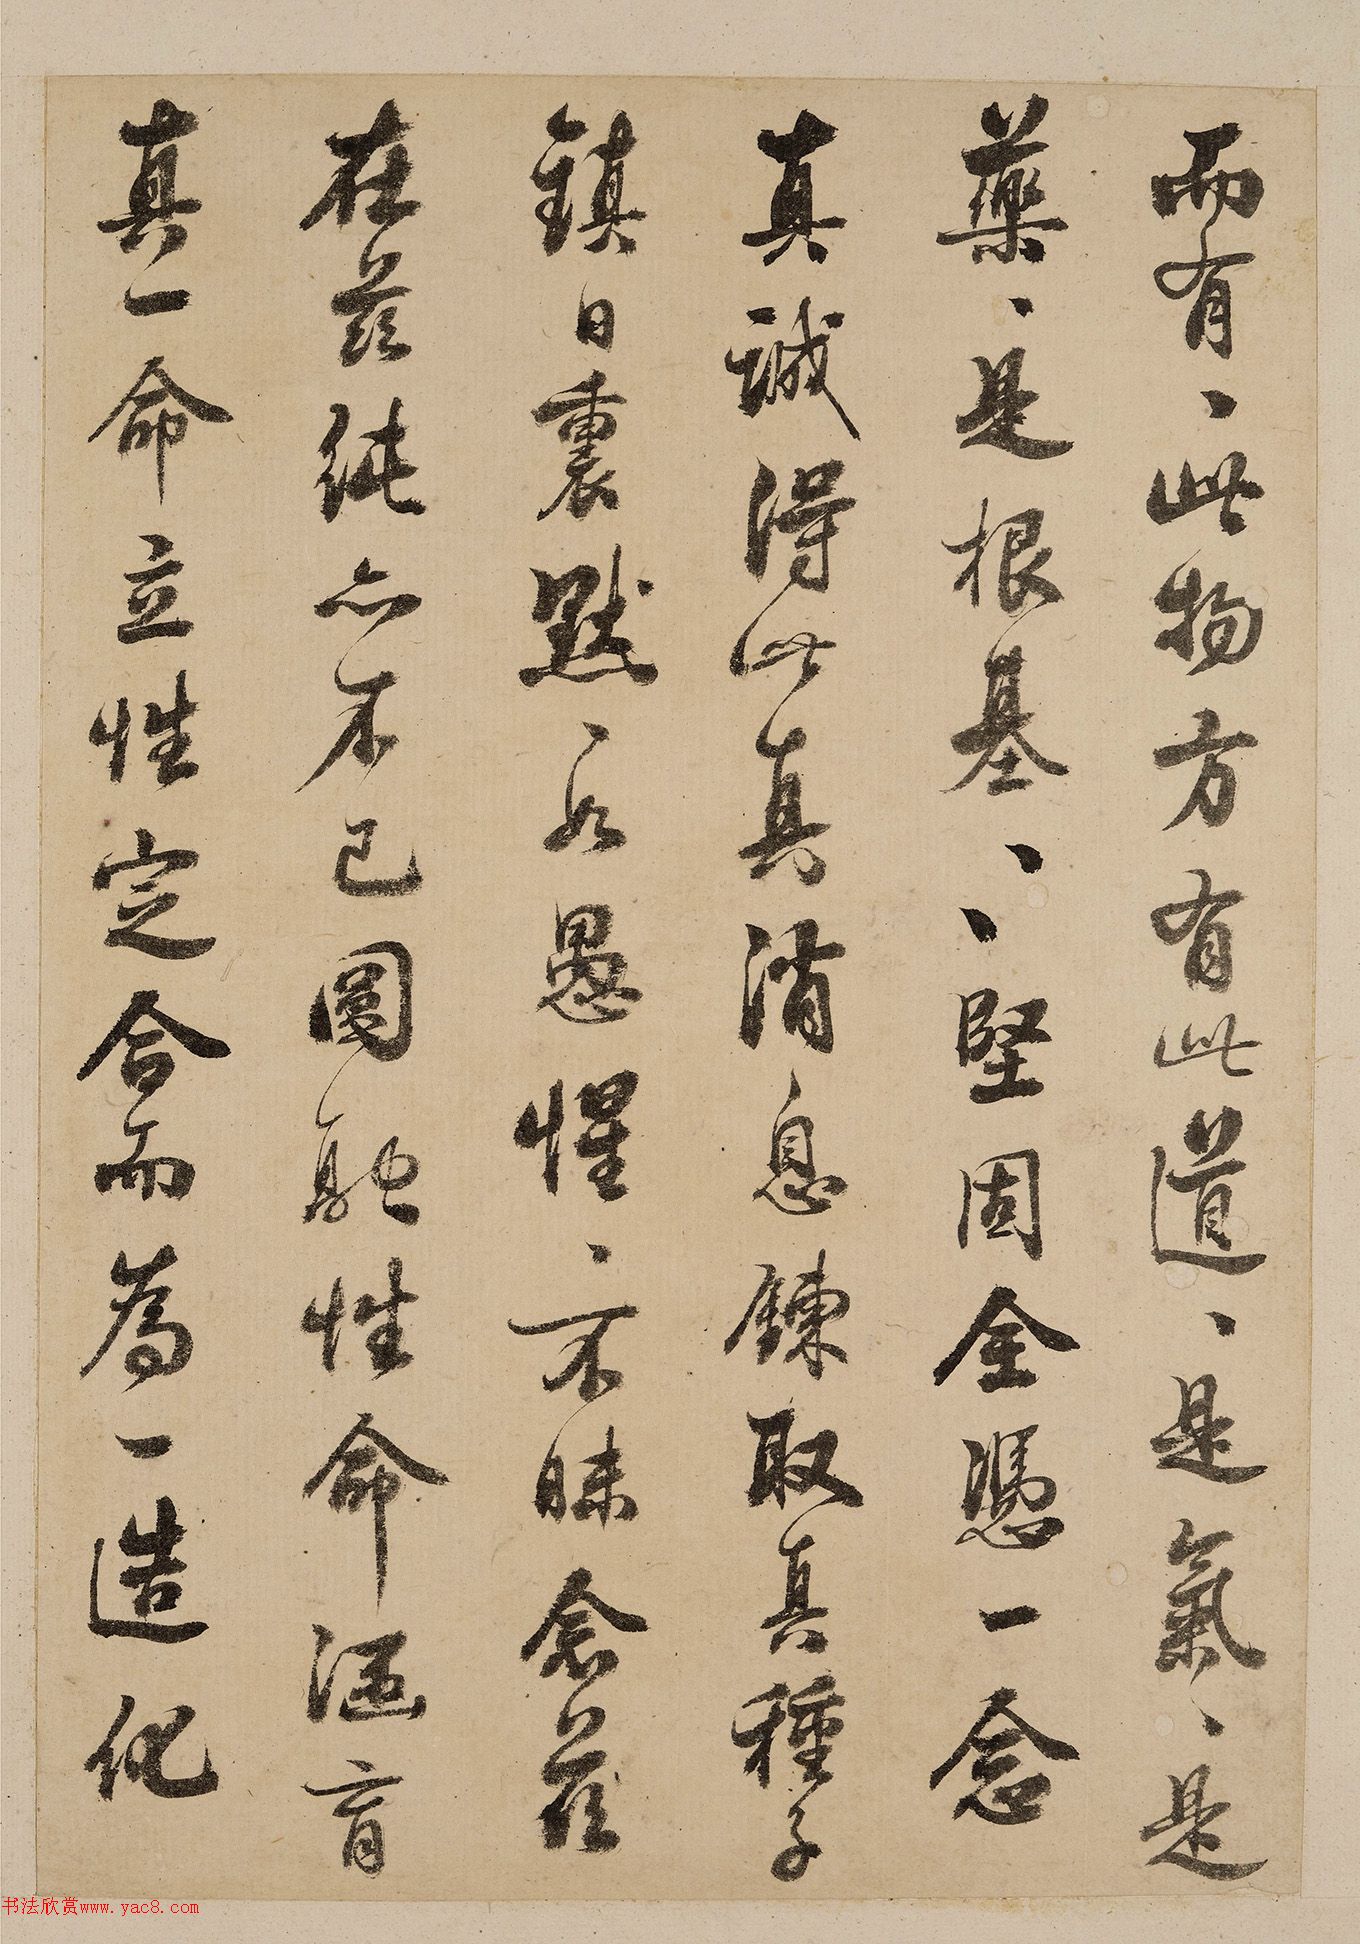 而有、此物方有此道、是氣、是
藥、是根基、、堅固全憑一念
真誠得此真消息鍊取真種子
鎮日裏默、如愚惺、不昧念茲
在茲純亦不已圓融性命涵育
真一命立性定合而為一造化
书法欣赏www.yac8.com